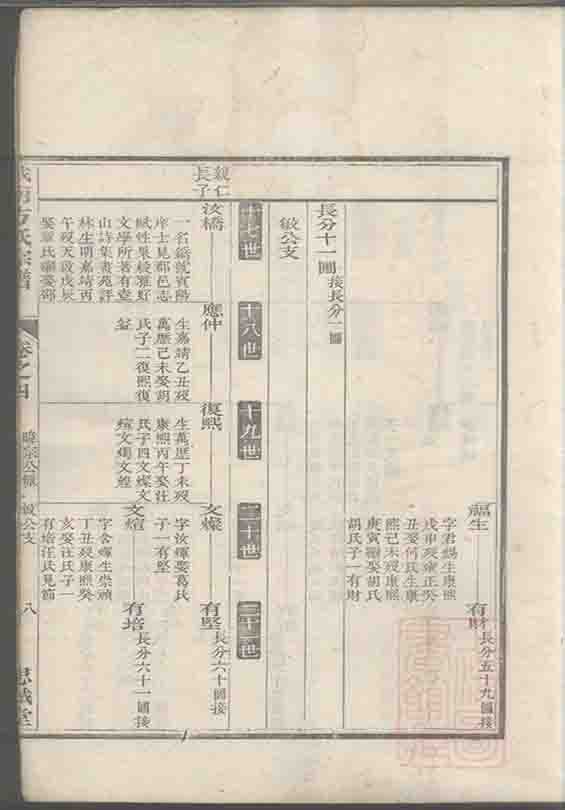 福生
字君錫生康熙
戊申歿雍正癸
丑娶何氏生康
熙己未歿康熙
庚寅繼娶胡氏
胡氏子一有財
有財
長分五十九圖接
長分十一圖
接長分一圖
敏公支
十七世
十八世
十九世
二十世
二十一世
親仁
長子
汝橋
一名
序士見郡邑志
賦性果毅雅好
文學所著有壺
山詩集書苑評
林生明嘉靖丙
午歿天啟戊辰
娶章氏繼娶邵
應仲
生嘉靖乙丑歿
萬歷己未娶胡
氏子二復熙復
復熙
生萬歷丁未歿
康熙丙午娶汪
氏子四文燦文
煊文燭文煌
文燦
字汝輝娶葛氏
子一有堅
有堅
長分六十圖接
文煊
字含輝生崇禎
丁丑歿康熙癸
亥娶汪氏子一
有培汪氏見節
有培
長分六十一圖接
方氏宗譜
卷之四
敏公支
八